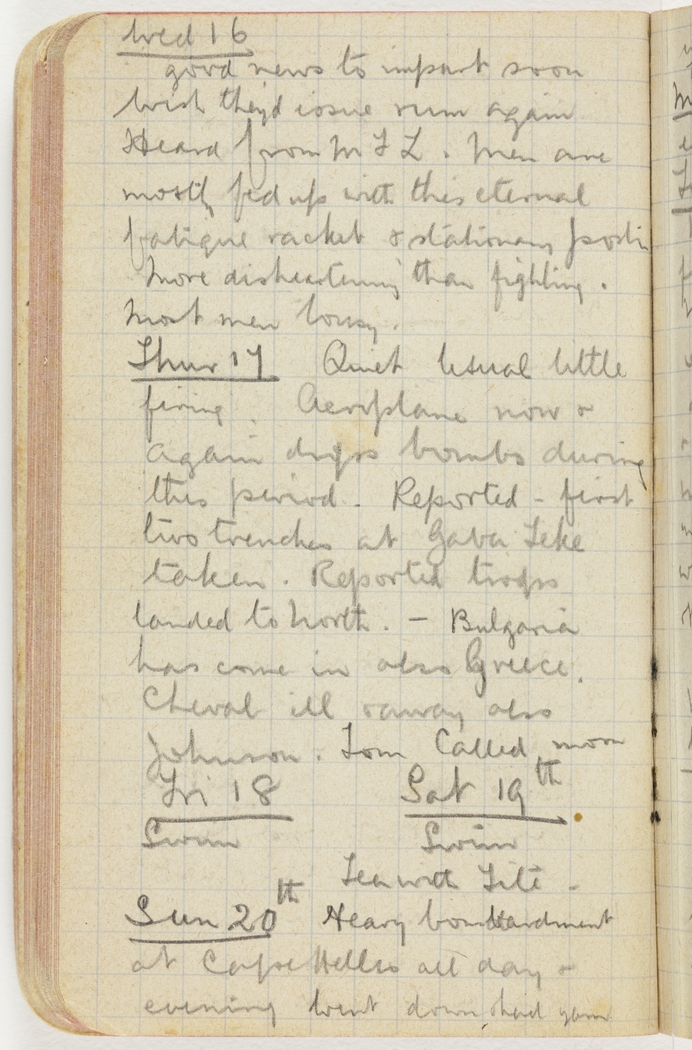 Wed 16
good news to impart soon
Wish they'd issue rum again
Heard from M F L. Men are
mostly fed up with this eternal
fatigue racket & stationary
More disheartening than fighting.
Most men lousy.
Thur 17 Quiet Usual little
firing. Aeroplane now &
again drops bombs during
this period. Reported - first
two trenches at Gaba Teke
taken. Reported troops
landed to North. - Bulgaria
has come in also Greece.
Cheval ill & away also
Johnson. Tom Called, moon
Fri 18 Sat 19th
Swim Swim
Tea with Titi -
Sun 20th Heavy bombardment
at Cape Helles all day &
evening Went down had yarn